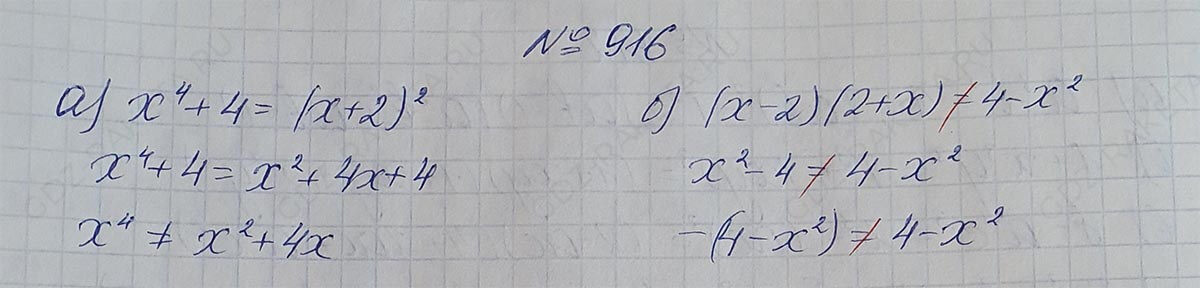 № 916
а) x⁴ + 4 = (x+2)²
x⁴ + 4 = x² + 4x + 4
x⁴ ≠ x² + 4x
б) (x - 2)(2+x) ≠ 4 - x²
x² - 4 ≠ 4 - x²
-(4 - x²) ≠ 4 - x²